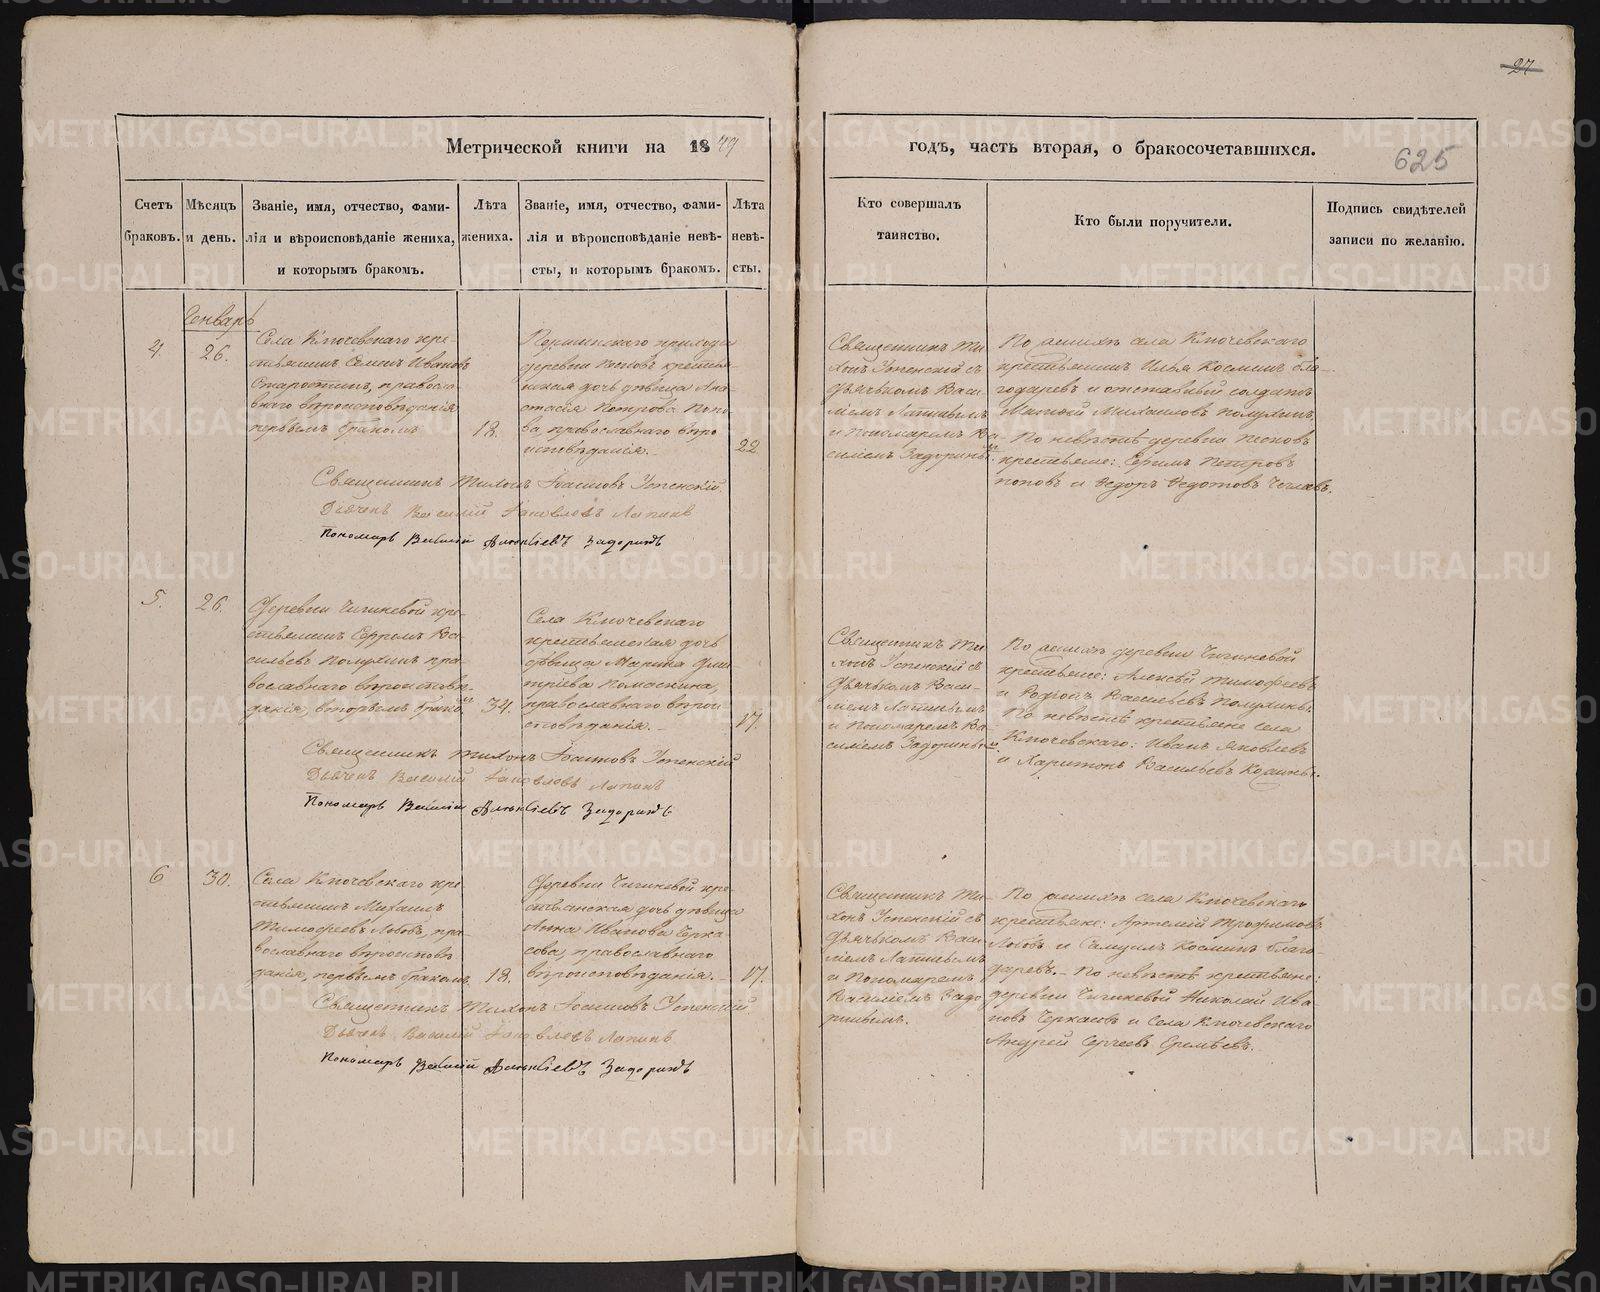 27
Метрической книги на 1879
годъ, часть вторая, о бракосочетавшихся.
625
Счетъ браковъ.
Мѣсяцъ и день.
Званіе, имя, отчество, фами-
лія и вѣроисповѣданіе жениха,
и которымъ бракомъ.
Лѣта
жениха.
Званіе, имя, отчество, фами-
лія и вѣроисповѣданіе невѣ-
сты, и которымъ бракомъ.
Лѣта
невѣ-
сты.
Кто совершалъ
таинство.
Кто были поручители.
Подпись свидѣтелей
записи по желанію.
Генварь
4.
26.
Села Ключевскаго кре-
стьянинъ Семенъ Ивановъ
Старостинъ, правосла-
внаго вѣроисповѣданія
первымъ бракомъ
18.
прихода
деревни крестьян
ская дочь дѣвица Ана-
стасія Петрова Попо-
ва, православнаго вѣро
исповѣданія.
22.
Священникъ Ти-
хонъ Успенскій съ
Дьячькомъ Васи-
ліемъ Лапинымъ
и Пономаремъ Ва-
силіемъ Задоринымъ.
По женихѣ села Ключевскаго
крестьянинъ Илья Косминъ Бла-
годаревъ и отставный солдатъ
Михаиловъ Полухинъ,
По невѣстѣ деревни
крестьяне: Ефимъ Петровъ
Поповъ и Ѳедоръ Ѳедотовъ
Священникъ Тихонъ Іоанновъ Успенскій.
Дьячекъ Василій Яковлевъ Лапинъ
Пономарь Василій Задоринъ
5.
26.
Деревни Чигиневой кре-
стьянинъ Ефремъ Ва-
сильевъ Полухинъ пра-
вославнаго вѣроисповѣ-
данія, вторымъ бракомъ
34.
Села Ключевскаго
крестьянская дочь
дѣвица Марина Дми-
тріева Помаскина,
православнаго вѣрои-
сповѣданія.
17.
Священникъ Ти-
хонъ Успенскій съ
Дьячькомъ Васи-
ліемъ Лапинымъ
и Пономаремъ Ва-
силіемъ Задоринымъ.
По женихѣ деревни Чигиневой
крестьяне: Алексѣй Тимофеевъ
и Родіонъ Васильевъ Полухины.
По невѣстѣ крестьяне села
Ключевскаго: Иванъ Яковлевъ
и Харитонъ Васильевъ
Священникъ Тихонъ Іоанновъ Успенскій
Дьячекъ Василій Яковлевъ Лапинъ
Пономарь Василій Задоринъ
6
30.
Села Ключевскаго кре
стьянинъ Михаилъ
Тимофеевъ Лобовъ, пра
вославнаго вѣроисповѣ
данія, первымъ бракомъ
18.
Деревни Чигиневой кре-
стьянская дочь дѣвица
Анна Иванова Черка
сова, православнаго
вѣроисповѣданія.
17.
Священникъ Ти-
хонъ Успенскій съ
Дьячькомъ Васи-
ліемъ Лапинымъ
и Пономаремъ
Василіемъ Задо
ринымъ.
По женихѣ села Ключевскаго
крестьяне: Артемій Трофимовъ
Лобовъ и Самуилъ Косминъ Благо-
даревъ. По невѣстѣ крестьяне:
деревни Чигиневой Николай Ива-
новъ Черкасовъ и Села Ключевскаго
Андрей Сергеевъ Еремѣевъ.
Священникъ Тихонъ Іоанновъ Успенскій.
Дьячекъ Василій Яковлевъ Лапинъ
Пономарь Василій Задоринъ
METRIKI.GASO-URAL.RU